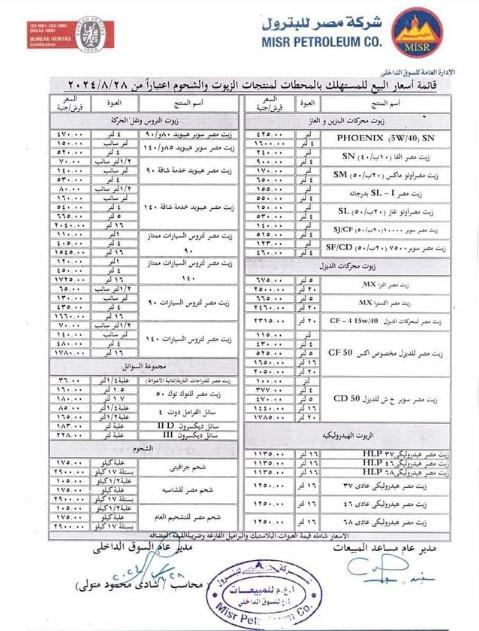 شركة مصر للبترول
MISR PETROLEUM CO.
MISR
BUREAU VERITAS
Certification
الإدارة العامة للسوق الداخلى
قائمة أسعار البيع للمستهلك بالمحطات لمنتجات الزيوت والشحوم اعتباراً من ٢٠٢٤/٨/٢٨
اسم المنتج العبوة السعر قرش/جنية
زيوت محركات البنزين و الغاز
PHOENIX (5W/40) SN لتر ٤٢٥.٠٠
٤ لتر ١٦٠٠.٠٠
زيت مصر الفا (١٠ب/٤٠) SN لتر ٢٤٠.٠٠
٤ لتر ٩٠٠.٠٠
زيت مصراوتو ماكس (٢٠ب/٥٠) SM لتر ١٧٠.٠٠
٤ لتر ٦٥٠.٠٠
زيت مصر SL - I بدرجاته لتر ١٥٥.٠٠
٤ لتر ٥٥٠.٠٠
زيت مصراوتو غاز (٢٠ب/٥٠) SL لتر ١٥٠.٠٠
٤ لتر ٥٣٠.٠٠
زيت مصر سوبر١٠٠٠٠ (٢٠ب/٥٠) SJ/CF لتر ١٤٠.٠٠
٤ لتر ٥١٥.٠٠
زيت مصر سوبر٧٥٠٠ (٢٠ب/٥٠) SF/CD لتر ١٢٣.٠٠
٤ لتر ٤٦٠.٠٠
زيوت محركات الديزل
زيت مصر الترا MX ٥ لتر ٦٧٥.٠٠
٢٠ لتر ٢٥٠٠.٠٠
زيت مصر اكسترا MX ٥ لتر ٦٦٥.٠٠
٢٠ لتر ٢٤٦٠.٠٠
زيت مصر لمحركات الديزل CF - 4 15w/40 ٢٠ لتر ٢٣١٥.٠٠
زيت مصر للديزل مخصوص اكس CF 50 لتر ١١٥.٠٠
٤ لتر ٤٣٠.٠٠
٥ لتر ٥٢٥.٠٠
١٦ لتر ١٦٥٠.٠٠
٢٠ لتر ٢٠٥٠.٠٠
زيت مصر سوبر خ ش للديزل CD 50 لتر ١٠٠.٠٠
٤ لتر ٣٧٧.٠٠
٥ لتر ٤٧٠.٠٠
١٦ لتر ١٤٤٠.٠٠
٢٠ لتر ١٧٦٥.٠٠
الزيوت الهيدروليكيه
زيت مصر هيدروليكى ٣٧ HLP ١٦ لتر ١١٣٥.٠٠
زيت مصر هيدروليكى ٤٦ HLP ١٦ لتر ١١٣٥.٠٠
زيت مصر هيدروليكى ٦٨ HLP ١٦ لتر ١١٣٥.٠٠
زيت مصر هيدروليكى عادى ٣٧ ١٦ لتر ١٢٥٠.٠٠
زيت مصر هيدروليكى عادى ٤٦ ١٦ لتر ١٢٥٠.٠٠
زيت مصر هيدروليكى عادى ٦٨ ١٦ لتر ١٢٥٠.٠٠
اسم المنتج العبوة السعر قرش/جنية
زيوت التروس ونقل الحركة
زيت مصر سوبر هيبويد ٨٠و/٩٠ ٤ لتر ٤٧٠.٠٠
زيت مصر سوبر هيبويد ٨٥و/١٤٠ لتر سائب ١٥٠.٠٠
٤ لتر ٥٢٠.٠٠
زيت مصر هيبويد خدمة شاقة ٩٠ ١/٢ لتر سائب ٧٠.٠٠
لتر سائب ١٤٠.٠٠
٤ لتر ٥٣٠.٠٠
زيت مصر هيبويد خدمة شاقة ١٤٠ ١/٢ لتر سائب ٨٠.٠٠
لتر سائب ١٦٠.٠٠
٤ لتر ٥٤٠.٠٠
٥ لتر ٦٦٥.٠٠
١٦ لتر ٢٠٤٠.٠٠
زيت مصر لتروس السيارات ممتاز ٩٠ ١ لتر ١١٠.٠٠
٤ لتر ٤٠٥.٠٠
١٦ لتر ١٥٤٥.٠٠
زيت مصر لتروس السيارات ممتاز ١٤٠ ١ لتر ١٢٠.٠٠
٤ لتر ٤٥٠.٠٠
١٦ لتر ١٧٢٥.٠٠
زيت مصر لتروس السيارات ٩٠ ١/٢ لتر سائب ٦٥.٠٠
لتر سائب ١٣٠.٠٠
٤ لتر ٤٣٥.٠٠
١٦ لتر ١٦٦٠.٠٠
زيت مصر لتروس السيارات ١٤٠ ١/٢ لتر سائب ٧٠.٠٠
لتر سائب ١٤٠.٠٠
٤ لتر ٤٨٠.٠٠
١٦ لتر ١٧٨٠.٠٠
مجموعة السوائل
علبة١/٤ لتر ٣٦.٠٠
زيت مصر للتوك توك ٥٠ ١.٥ لتر ١٦٠.٠٠
١.٧ لتر ١٨٠.٠٠
سائل الفرامل دوت ٤ علبة١/٢ لتر ٨٥.٠٠
علبة لتر ١٦٥.٠٠
سائل ديكسرون II D علبة لتر ١٨٣.٠٠
سائل ديكسرون III علبة لتر ٢٢٨.٠٠
الشحوم
شحم جرافيتى علبة كيلو ١٧٥.٠٠
بستلة ١٧ كيلو ٢٩٠٠.٠٠
شحم مصر للشاسيه علبة١/٢ كيلو ١٠٥.٠٠
علبة كيلو ١٧٥.٠٠
بستلة ١٧ كيلو ٢٩٠٠.٠٠
شحم مصر للتشحيم العام علبة١/٢ كيلو ١٠٥.٠٠
علبة كيلو ١٧٥.٠٠
بستلة ١٧ كيلو ٢٩٠٠.٠٠
الاسعار شامله قيمة العبوات البلاستيك والبراميل الفارغه وضريبة القيمة المضافه
مدير عام مساعد المبيعات
مدير عام السوق الداخلى
محاسب / شادى محمود متولى
أ.ع.م للمبيعات
أ.ع للسوق الداخلى
Misr Petroleum Co.